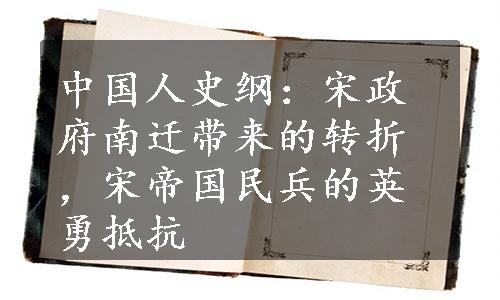 中国人史纲：宋政
府南迁带来的转折
，宋帝国民兵的英
勇抵抗